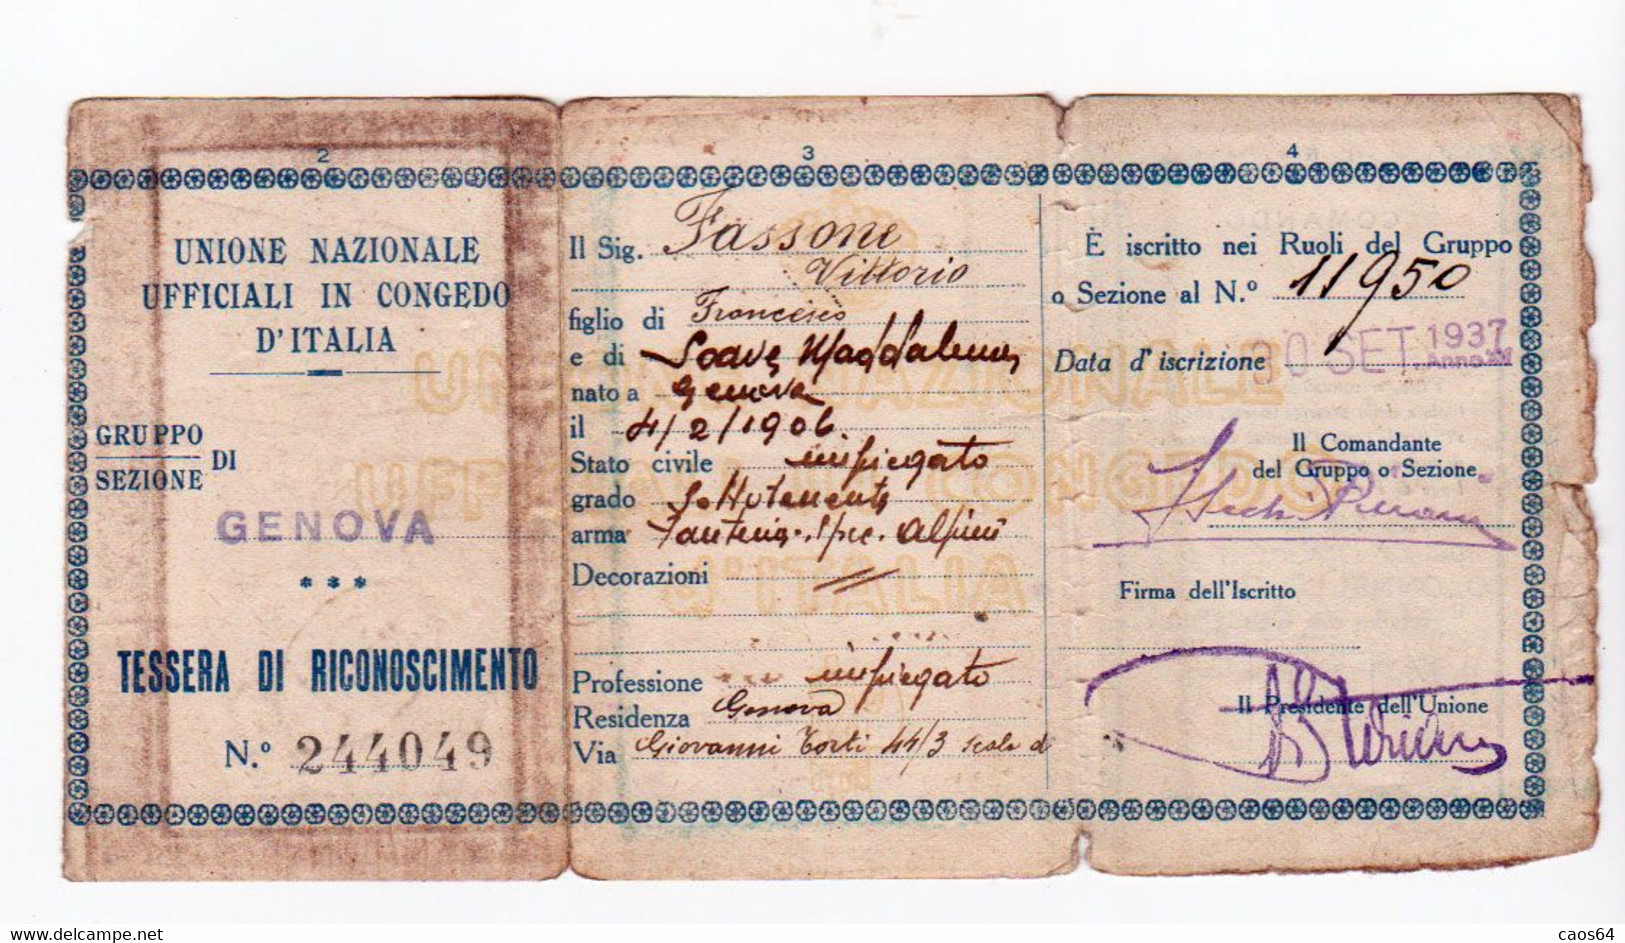 2
UNIONE NAZIONALE
UFFICIALI IN CONGEDO
D'ITALIA
GRUPPO
SEZIONE
DI
GENOVA
***
TESSERA DI RICONOSCIMENTO
N.º 244049
3
Il Sig. Fassone
Vittorio
figlio di Francesco
e di Soave Maddalena
nato a Genova
il 4/2/1906.
Stato civile impiegato
grado Sottotenente
arma Fanteria - Spec. Alpini
Decorazioni //
Professione impiegato
Residenza Genova
Via Giovanni Torti 44/3 scala d
4
È iscritto nei Ruoli del Gruppo
o Sezione al N.º 11950
Data d'iscrizione 30 SET. 1937
ANNO XV
Il Comandante
del Gruppo o Sezione
Firma dell'Iscritto
Il Presidente dell'Unione
UNIONE NAZIONALE
UFFICIALI IN CONGEDO
D'ITALIA
delcampe.net
caos64